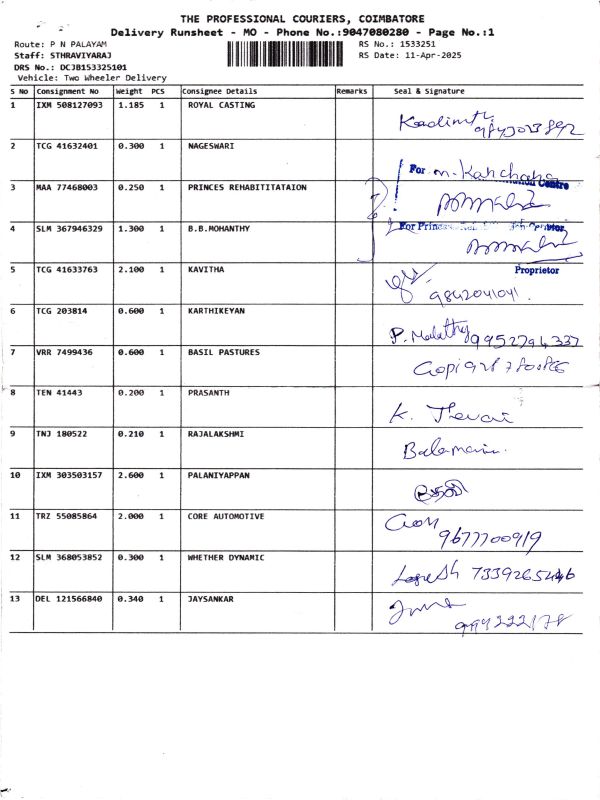 THE PROFESSIONAL COURIERS, COIMBATORE
Delivery Runsheet - MO - Phone No.:9047080280 - Page No.:1
Route: P N PALAYAM
RS No.: 1533251
Staff: STHRAVIYARAJ
RS Date: 11-Apr-2025
DRS No.: DCJB153325101
Vehicle: Two Wheeler Delivery
S No Consignment No Weight PCS Consignee Details Remarks Seal & Signature
1 IXM 508127093 1.185 1 ROYAL CASTING
2 TCG 41632401 0.300 1 NAGESWARI
For m. Kanchana
3 MAA 77468003 0.250 1 PRINCES REHABITITATAION
Centre
4 SLM 367946329 1.300 1 B.B.MOHANTHY
For Princess
Proprietor
5 TCG 41633763 2.100 1 KAVITHA
9842041041.
6 TCG 203814 0.600 1 KARTHIKEYAN
P. Malathy 9952794337
7 VRR 7499436 0.600 1 BASIL PASTURES
Gopi
8 TEN 41443 0.200 1 PRASANTH
K. Thevai
9 TNJ 180522 0.210 1 RAJALAKSHMI
10 IXM 303503157 2.600 1 PALANIYAPPAN
11 TRZ 55085864 2.000 1 CORE AUTOMOTIVE
9677700919
12 SLM 368053852 0.300 1 WHETHER DYNAMIC
13 DEL 121566840 0.340 1 JAYSANKAR